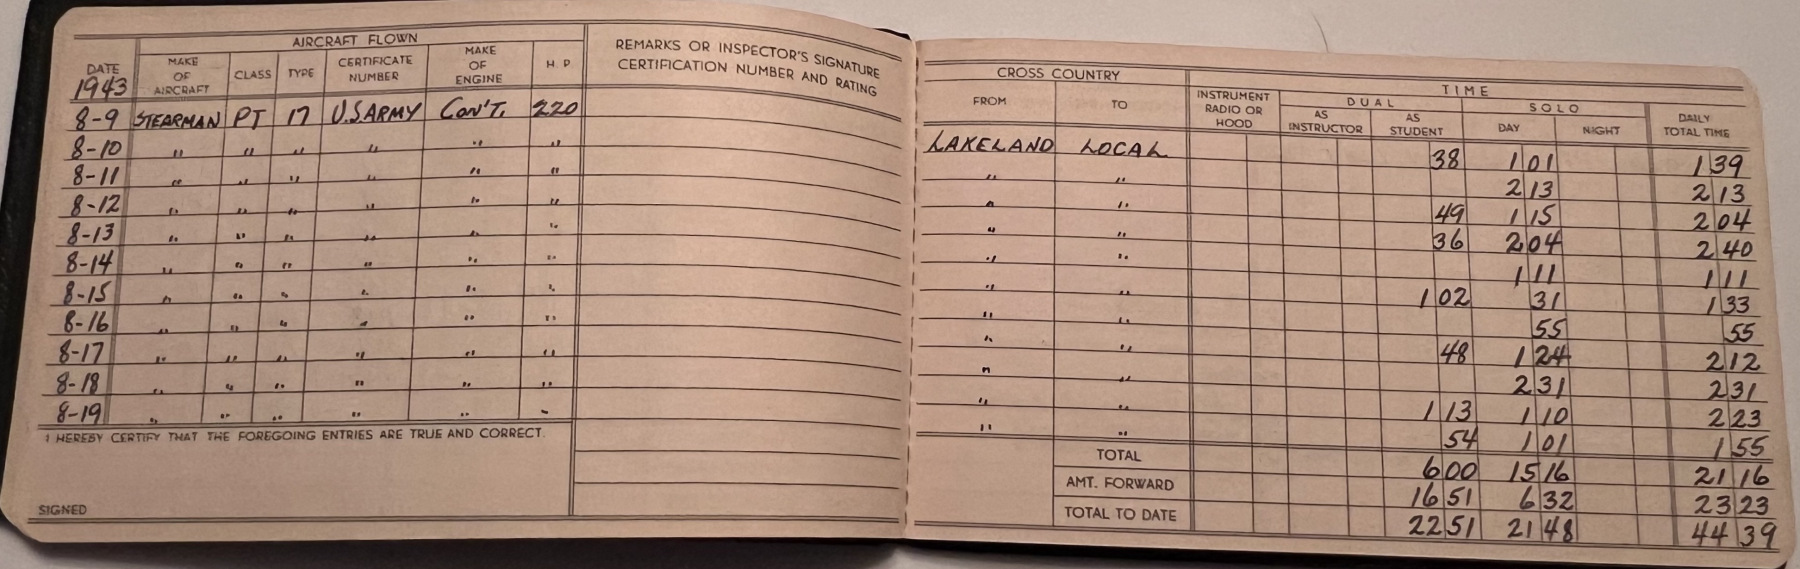 AIRCRAFT FLOWN
DATE 1943 MAKE OF AIRCRAFT CLASS TYPE CERTIFICATE NUMBER MAKE OF ENGINE H. P.
8-9 STEARMAN PT 17 U.S ARMY CON'T. 220
8-10 " " " " " "
8-11 " " " " " "
8-12 " " " " " "
8-13 " " " " " "
8-14 " " " " " "
8-15 " " " " " "
8-16 " " " " " "
8-17 " " " " " "
8-18 " " " " " "
8-19 " " " " " "
I HEREBY CERTIFY THAT THE FOREGOING ENTRIES ARE TRUE AND CORRECT.
SIGNED
REMARKS OR INSPECTOR'S SIGNATURE
CERTIFICATION NUMBER AND RATING
CROSS COUNTRY TIME
FROM TO INSTRUMENT RADIO OR HOOD DUAL SOLO DAILY TOTAL TIME
AS INSTRUCTOR AS STUDENT DAY NIGHT
LAKELAND LOCAL 38 1 01 1 39
" " 2 13 2 13
" " 49 1 15 2 04
" " 36 2 04 2 40
" " 1 11 1 11
" " 1 02 31 1 33
" " 55 55
" " 48 1 24 2 12
" " 2 31 2 31
" " 1 13 1 10 2 23
" " 54 1 01 1 55
TOTAL 6 00 15 16 21 16
AMT. FORWARD 16 51 6 32 23 23
TOTAL TO DATE 22 51 21 48 44 39